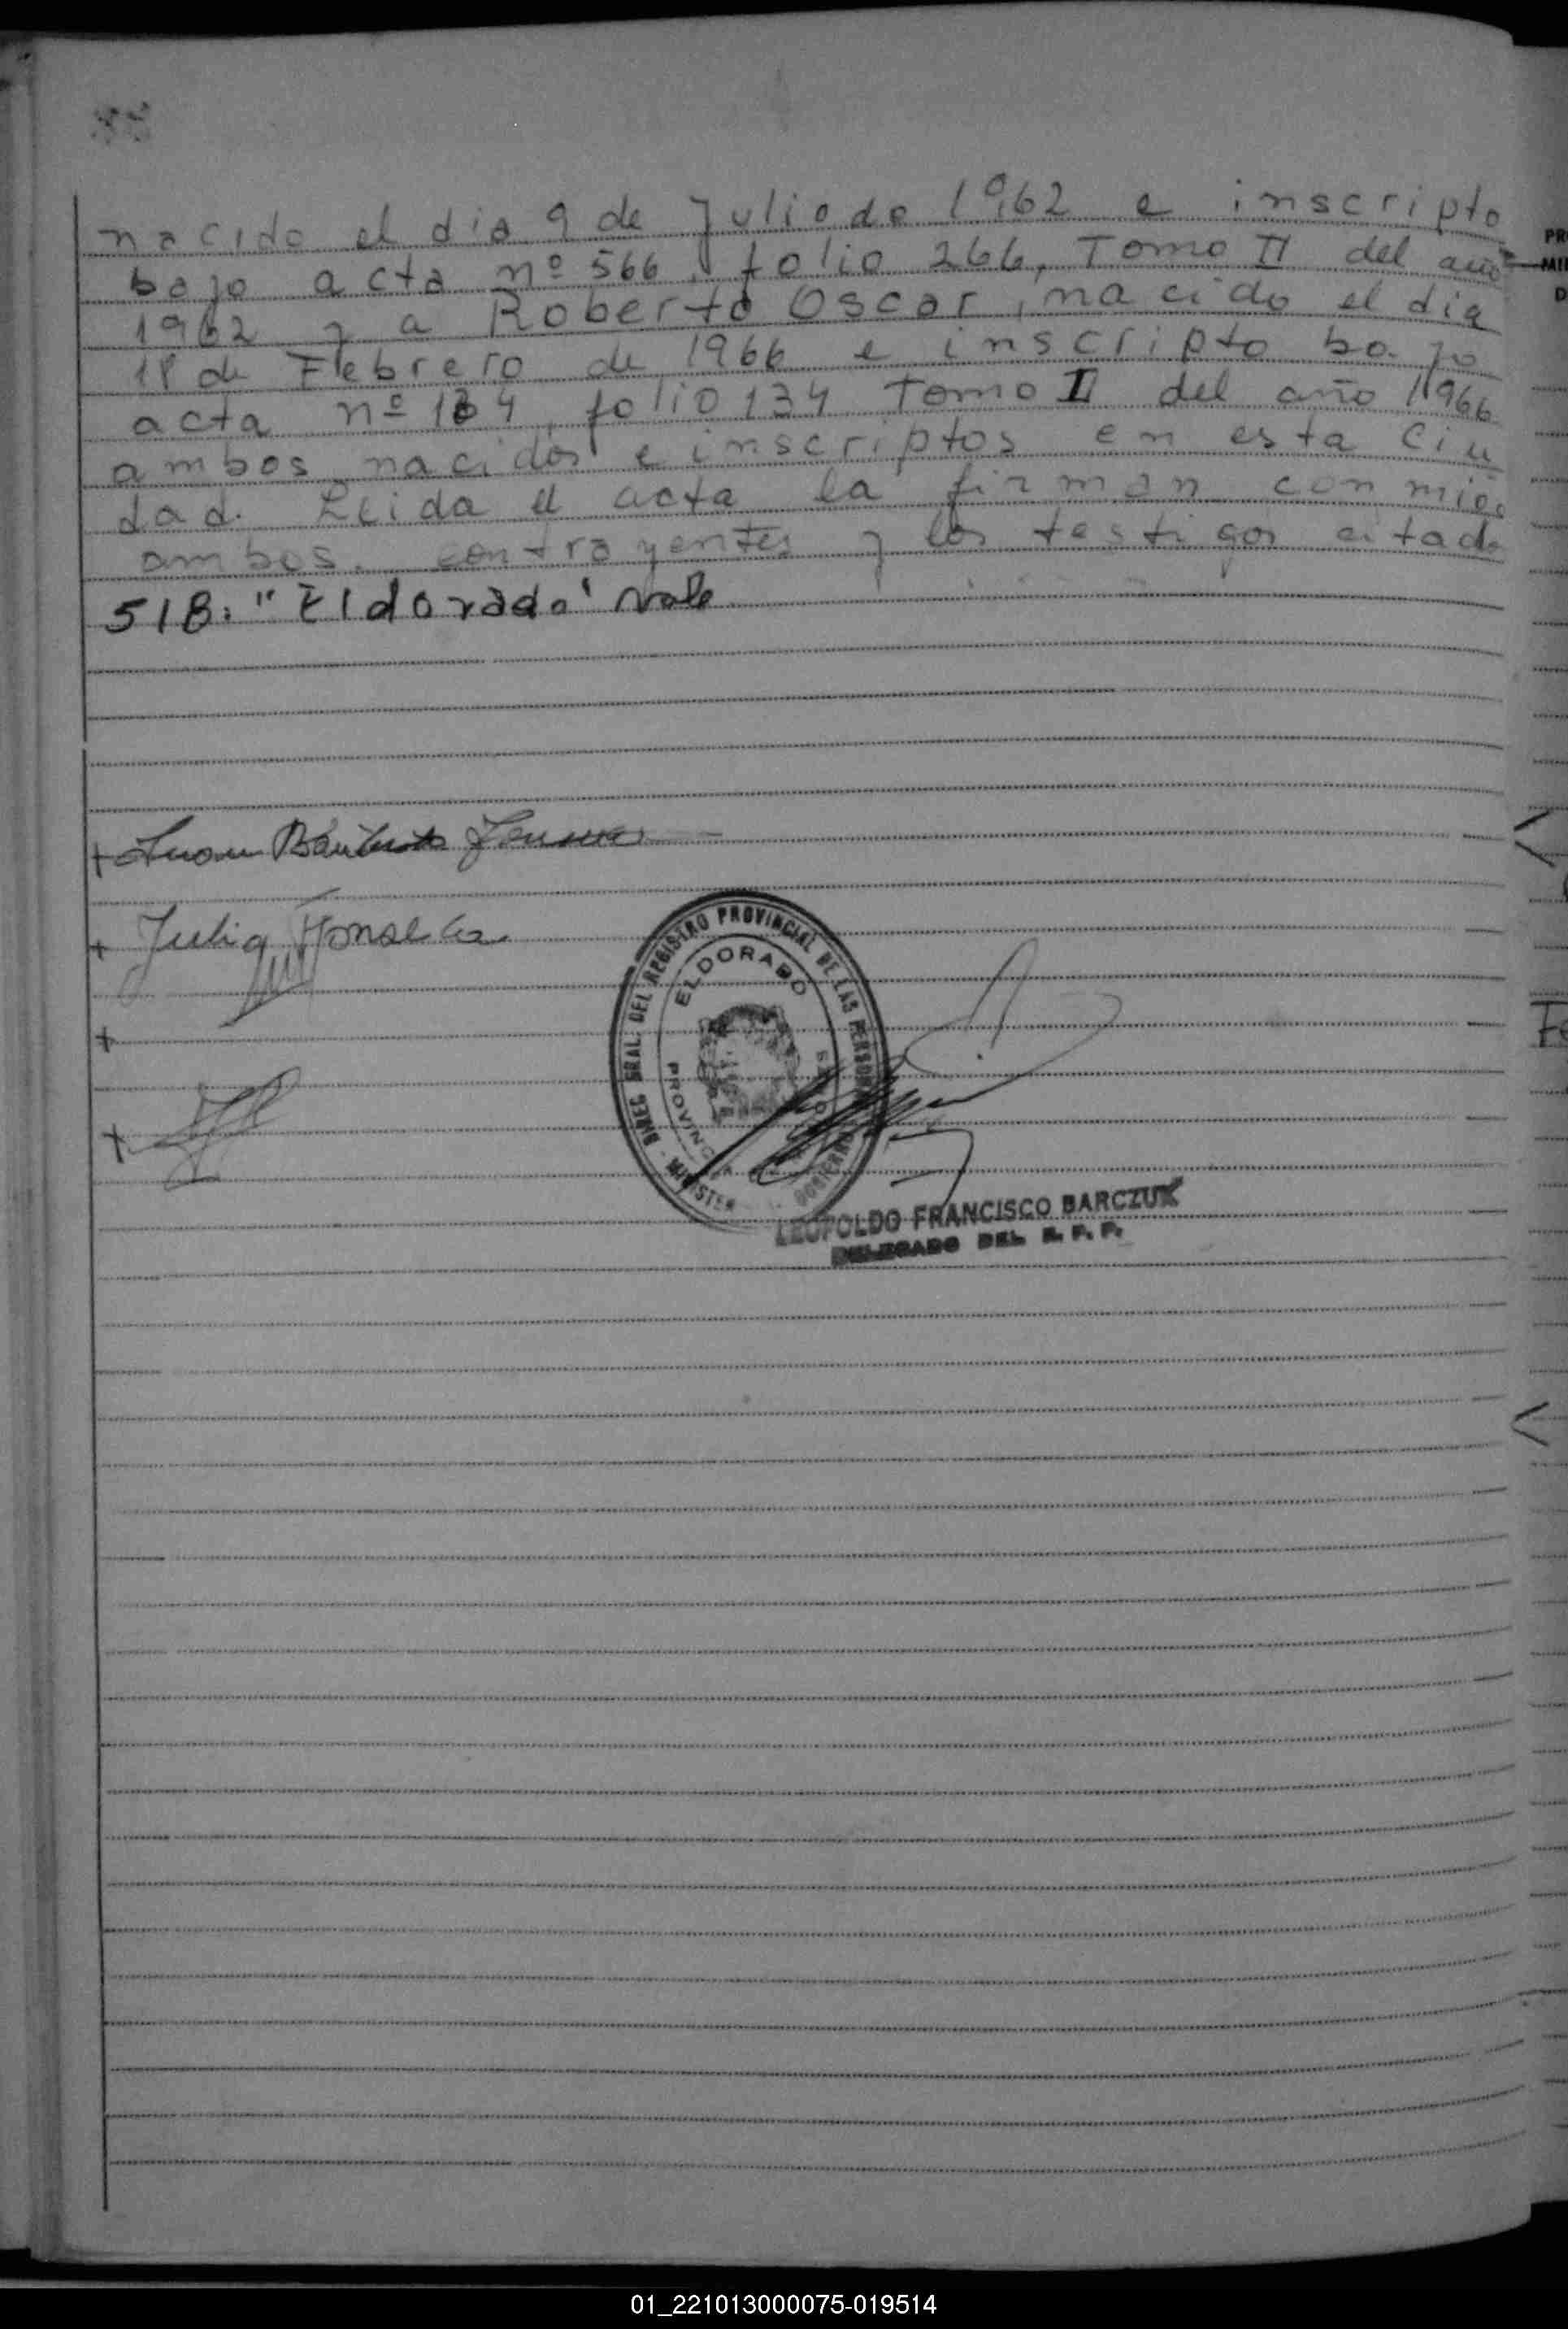 nacido el dia 9 de Julio de 1962 e inscripto
bajo acta nº 566, folio 266, Tomo II del año
1962 y a Roberto Oscar, nacido el dia
18 de Febrero de 1966 e inscripto bajo
acta nº 134, folio 134 Tomo II del año 1966
ambos nacidos e inscriptos en esta Ciu
dad. Leida el acta la firman conmigo
ambos contrayentes y los testigos citado
S/B: "Eldorado" vale
+ Juan Bautista
+ Julia Fonseca
+
+
GRAL. DEL REGISTRO PROVINCIAL DE LAS PERSONAS
ELDORADO
PROVINCIA
LEOPOLDO FRANCISCO BARCZUK
DELEGADO DEL R. P. P.
01_221013000075-019514